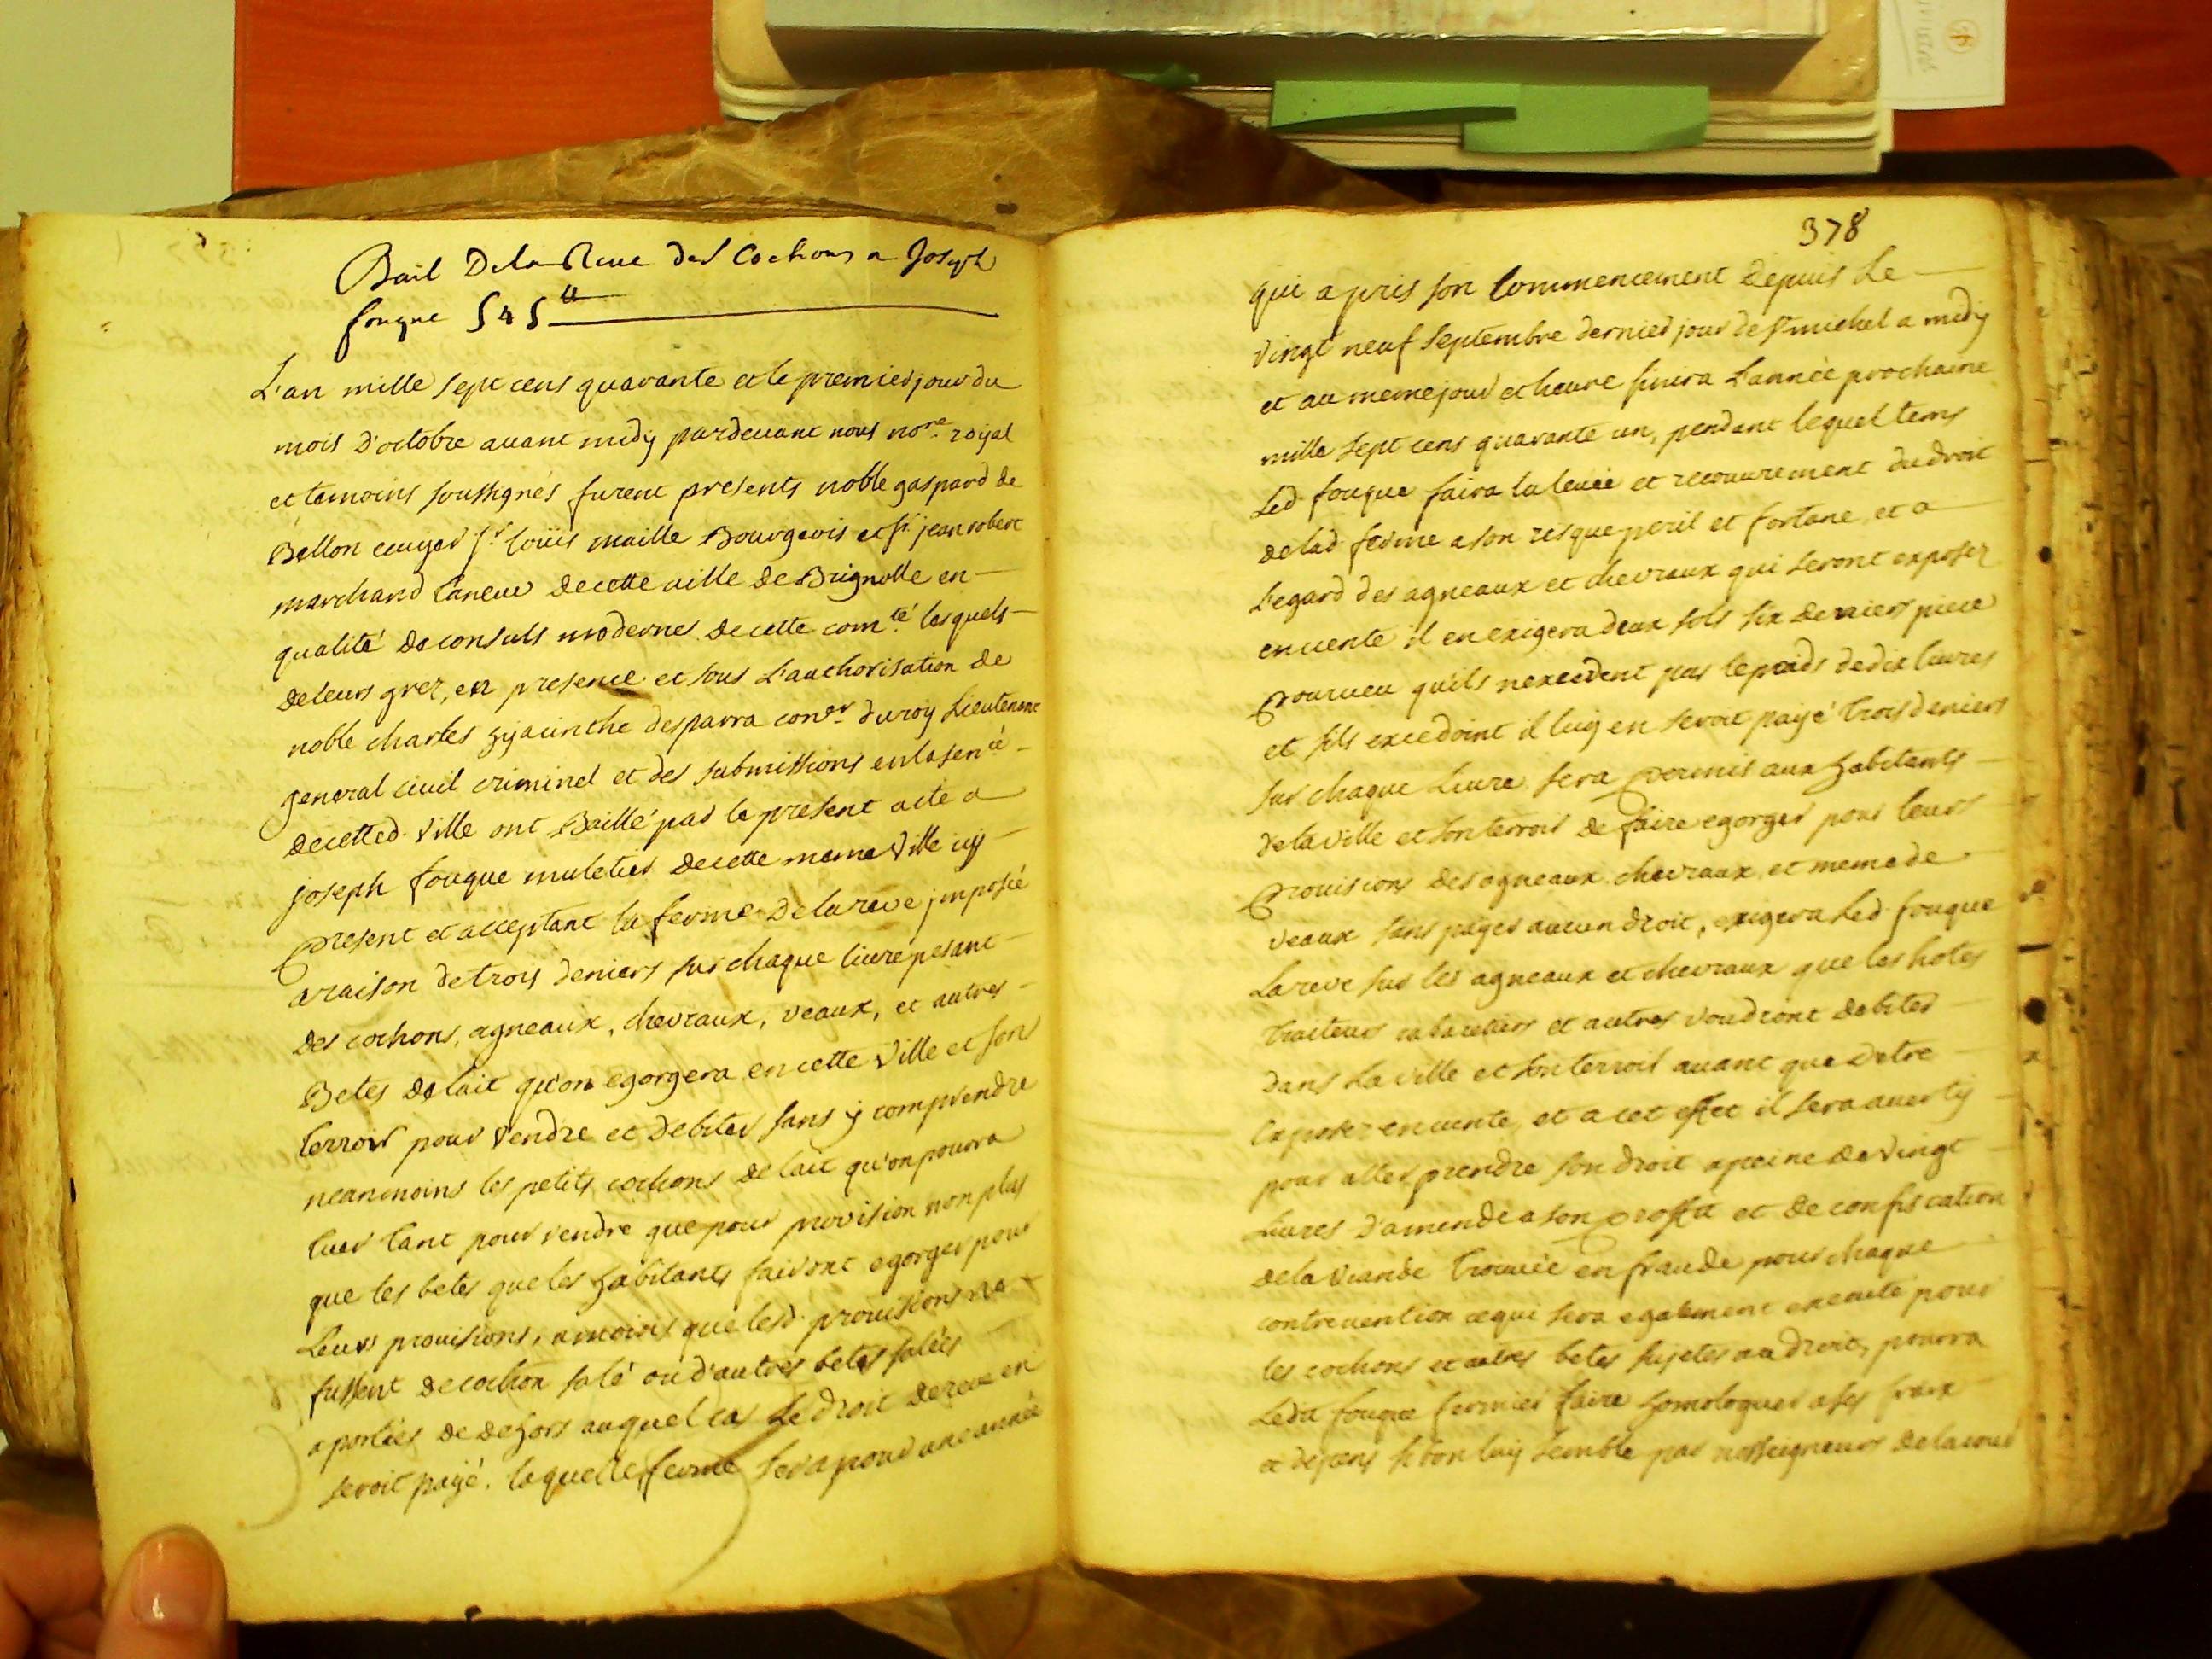 Bail De la Reve des Cochons a Joseph
fouque 545 ₶
L'an mille sept cens quarante et le premier jour du
mois d'octobre avant midy pardevant nous no.re royal
et temoins soussignés furent presents noble gaspard de
Bellon ecuyer s.r loüis maille Bourgeois et s.r jean robert
marchand taneur de cette ville de Brignolle en
qualité de consuls modernes de cette com.té lesquels
de leurs grez, en presence et sous L'authorisation de
noble charles hyacinthe desparra con.er du roy Lieutenant
general civil criminel et des submissions en la sen.cé
de cette d. Ville ont Baillé par le present acte a
joseph fouque muletier de cette meme Ville icy
present et acceptant la ferme de la reve imposée
a raison de trois deniers sur chaque livre pesant
des cochons, agneaux, chevraux, veaux, et autres
Betes de lait qu'on egorgera en cette Ville et son
terroir pour Vendre et debiter sans y comprendre
neanmoins les petits cochons de lait qu'on pourra
tuer tant pour vendre que pour provision non plus
que les betes que les habitants fairont egorger pour
Leurs provisions, a moins que lesd. provisions ne
fussent de cochon salé ou d'autres betes salées
aportées de dehors auquel cas Le droit de reve en
seroit payé. laquelle ferme sera pour une année
378
qui a pris son Commencement depuis Le
vingt neuf septembre dernier jour de s.t michel a midy
et au meme jour et heure finira L'année prochaine
mille sept cens quarante un, pendant lequel tems
Led. fouque faira la levée et recouvrement du droit
de lad. ferme a son risque peril et fortune, et a
L'egard des agneaux et chevraux qui seront exposez
en vente il en exigera deux sols six deniers piece
pourveu qu'ils nexcedent pas le poids de dix livres
et sils excedoint il luy en seroit payé trois deniers
sur chaque Livre. sera permis aux habitants
de la Ville et son terroir de faire egorger pour leurs
provisions des agneaux, chevraux, et meme de
veaux sans payer aucun droit, exigera Led. fouque
La reve sur les agneaux et chevraux que les hotes
traiteurs cabaretiers et autres voudront debiter
dans La ville et son terroir avant que detre
Exposez en vente, et a cet effet il sera averty
pour aller prendre son droit a peine de Vingt
Livres d'amende a son proffit et de confiscation
de la Viande trouvée en fraude pour chaque
contrevention ce qui sera egalement executé pour
les cochons et autres betes sujetes au droit, pourra
Ledit fouque fermier faire homologuer a ses fraix
et depens si bon luy semble par nosseigneurs de la cour